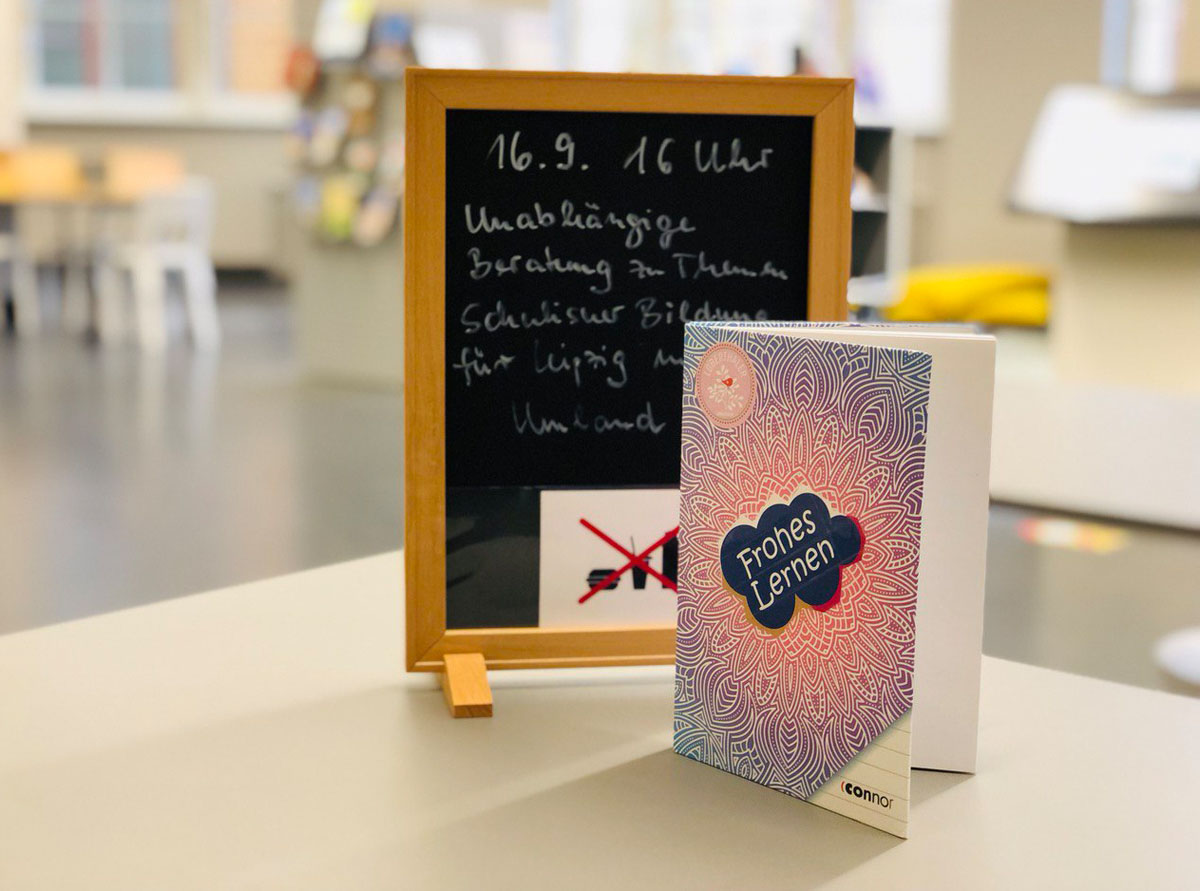 16.9. 16 Uhr
Unabhängige
Beratung zu Themen
Schulischer Bildung
für Leipzig
Umland
Frohes
Lernen
connor